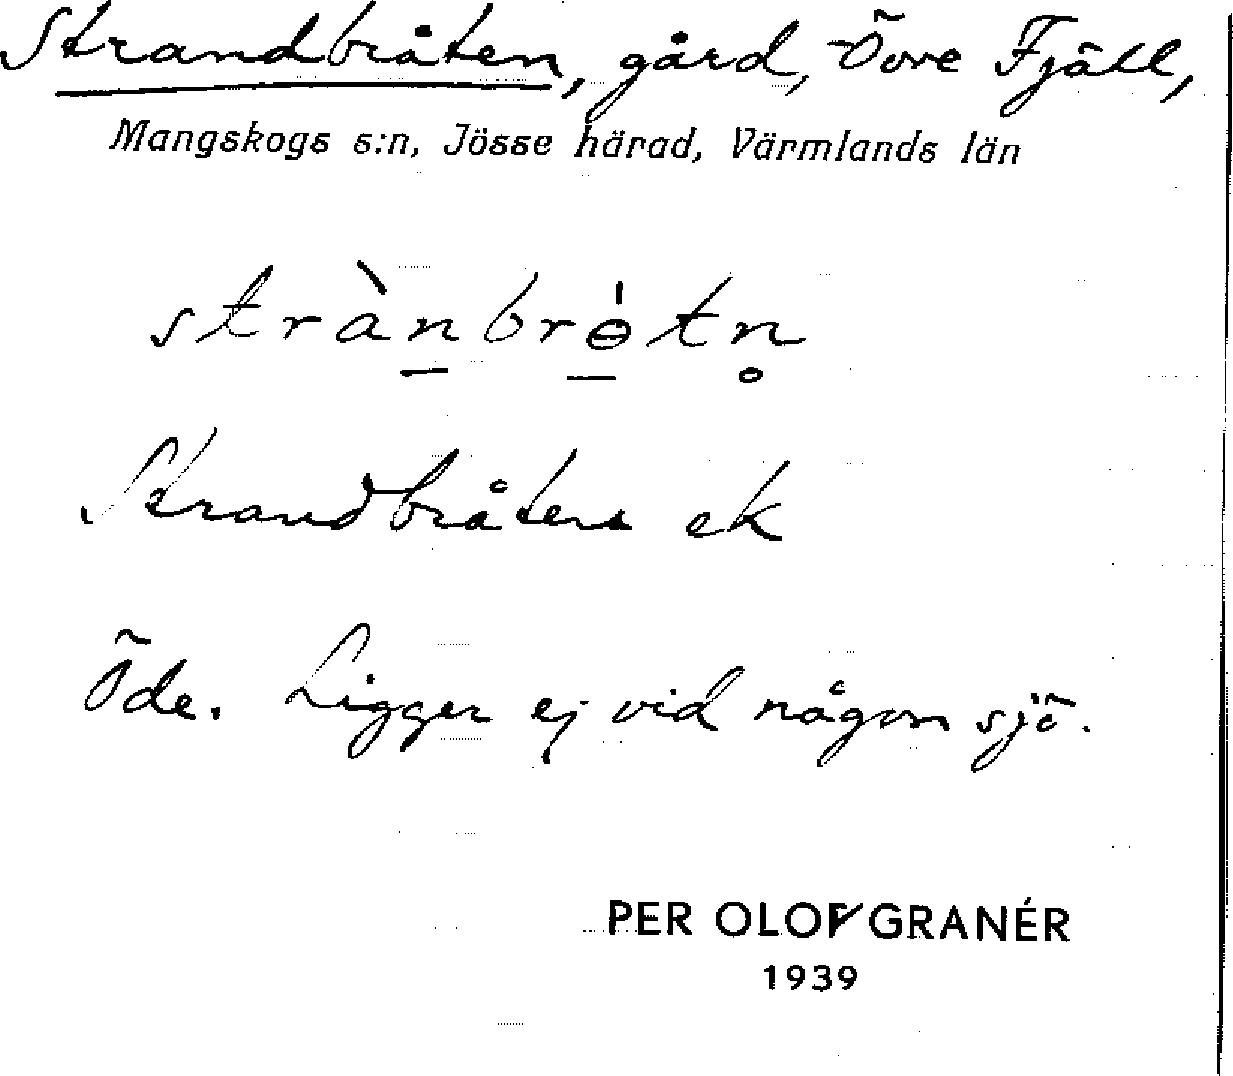 Strandbråten, gård, Övre Fjäll,
Mangskogs s:n, Jösse härad, Värmlands län
strànbrɵ̀tn̥
Strandbråten ek
Öde. Ligger ej vid någon sjö.
PER OLOF GRANÉR
1939